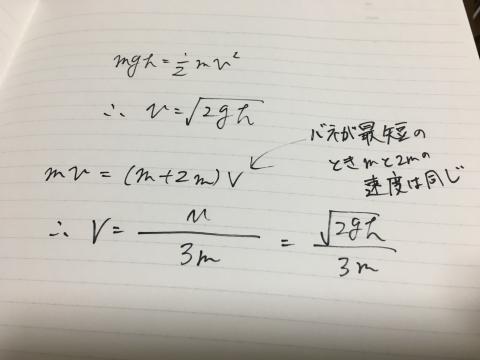 mgh = 1/2 mv²
∴ v = √2gh
mv = (m+2m)V
バネが最短の
ときmと2mの
速度は同じ
∴ V = v/3m = √2gh/3m